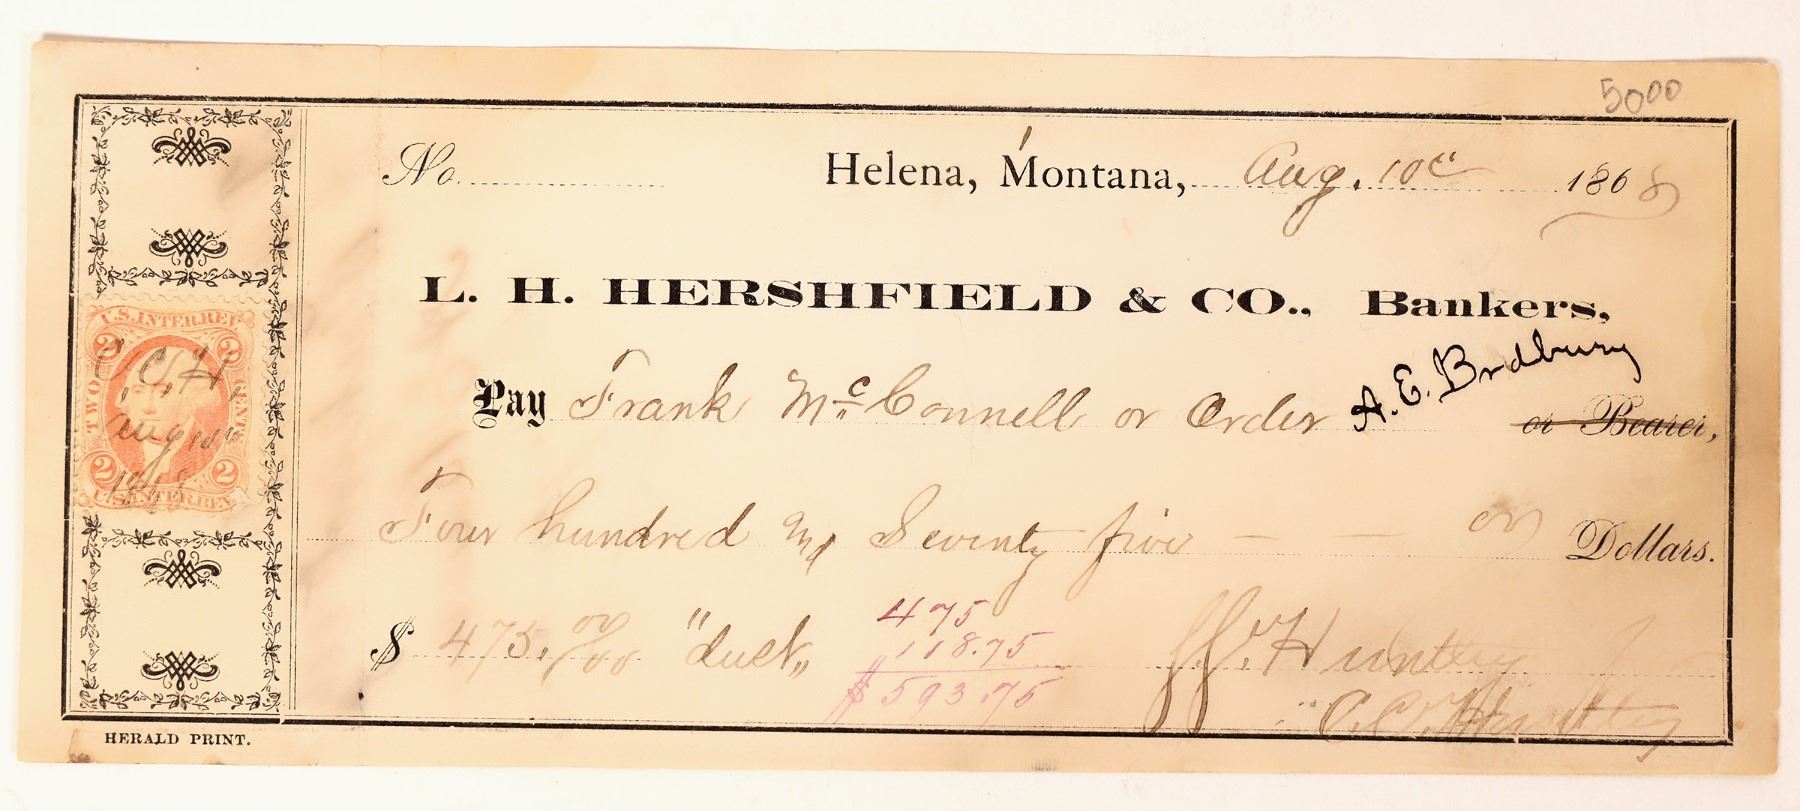 5000
No. Helena, Montana, Aug. 10th 1868
L. H. HERSHFIELD & CO., Bankers,
Pay Frank McConnell or Order A. E. Bradbury or Bearer,
Four hundred and Seventy five — — 00 Dollars.
$ 475.00/00 "dust"
475
118.75
$593.75
J. Huntley
C. C. Huntley
U.S. INTER. REV.
2 2
TWO CENTS
C. C. H.
Aug 10th
1868
2 2
U.S. INTER. REV.
HERALD PRINT.